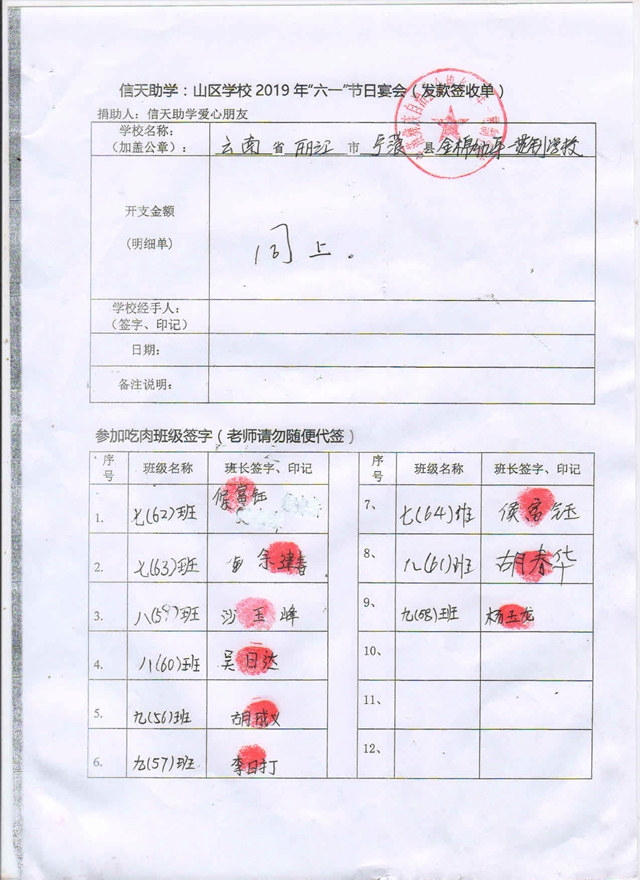 信天助学：山区学校2019年“六一”节日宴会（发款签收单）
捐助人：信天助学爱心朋友
学校名称：
（加盖公章）： 云南省丽江市宁蒗县金棉九年一贯制学校
开支金额
（明细单） 同上.
学校经手人：
（签字、印记）
日期：
备注说明：
参加吃肉班级签字（老师请勿随便代签）
序号 班级名称 班长签字、印记 序号 班级名称 班长签字、印记
1. 七(62)班 侯富钰 7、 七(64)班 侯富钰
2. 七(63)班 余建春 8、 八(61)班 胡春华
3. 八(59)班 沙玉峰 9、 九(58)班 杨玉龙
4. 八(60)班 吴日达 10、
5. 九(56)班 胡成义 11、
6. 九(57)班 李日打 12、